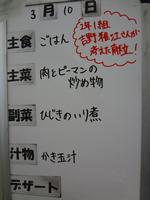 3月10日
2年1組
考えた献立!
主食 ごはん
主菜 肉とピーマンの
炒め物
副菜 ひじきのいり煮
汁物 かき玉汁
デザート